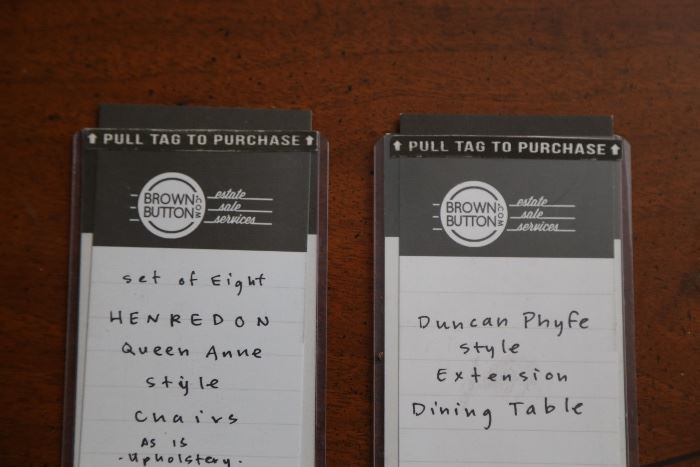 ⬆ PULL TAG TO PURCHASE ⬆
BROWN
BUTTON
.COM
estate
sale
services
set of Eight
HENREDON
Queen Anne
style
Chairs
AS is
- Upholstery -
⬆ PULL TAG TO PURCHASE ⬆
BROWN
BUTTON
.COM
estate
sale
services
Duncan Phyfe
style
Extension
Dining Table